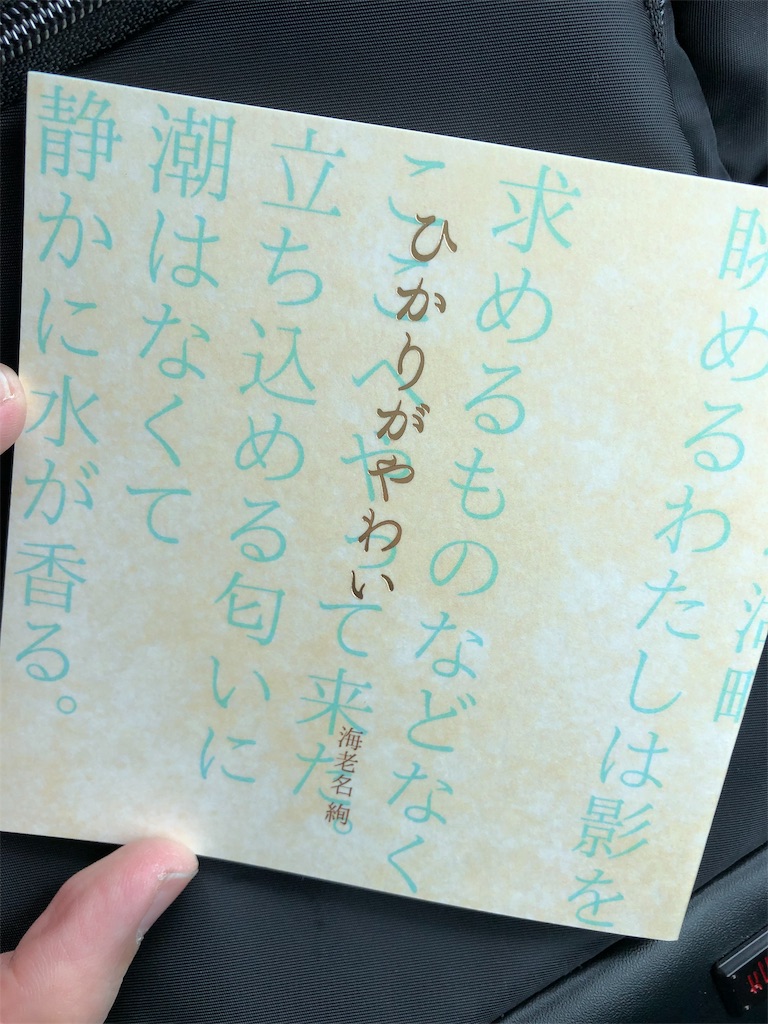 眺めるわたしは影を
求めるものなどなく
ここへやって来た。
立ち込める匂いに
潮はなくて
静かに水が香る。
ひかりがやわい
海老名絢